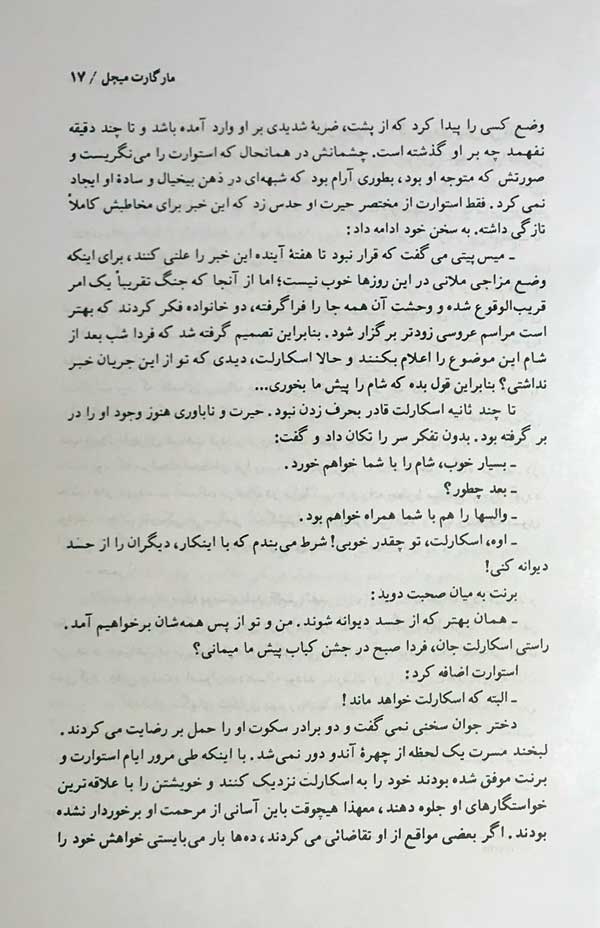 مارگارت میچل / ۱۷
وضع کسی را پیدا کرد که از پشت، ضربهٔ شدیدی بر او وارد آمده باشد و تا چند دقیقه
نفهمد چه بر او گذشته است. چشمانش در همانحال که استوارت را می‌نگریست و
صورتش که متوجه او بود، بطوری آرام بود که شبهه‌ای در ذهن بیخیال و سادهٔ او ایجاد
نمی‌کرد. فقط استوارت از مختصر حیرت او حدس زد که این خبر برای مخاطبش کاملاً
تازگی داشته. به سخن خود ادامه داد:
ـ میس پیتی می گفت که قرار نبود تا هفتهٔ آینده این خبر را علنی کنند، برای اینکه
وضع مزاجی ملانی در این روزها خوب نیست؛ اما از آنجا که جنگ تقریباً یک امر
قریب‌الوقوع شده و وحشت آن همه جا را فراگرفته، دو خانواده فکر کردند که بهتر
است مراسم عروسی زودتر برگزار شود. بنابراین تصمیم گرفته شد که فردا شب بعد از
شام این موضوع را اعلام بکنند و حالا اسکارلت، دیدی که تو از این جریان خبر
نداشتی؟ بنابراین قول بده که شام را پیش ما بخوری...
تا چند ثانیه اسکارلت قادر بحرف زدن نبود. حیرت و ناباوری هنوز وجود او را در
بر گرفته بود. بدون تفکر سر را تکان داد و گفت:
ـ بسیار خوب، شام را با شما خواهم خورد.
ـ بعد چطور؟
ـ والسها را هم با شما همراه خواهم بود.
ـ اوه، اسکارلت، تو چقدر خوبی! شرط می‌بندم که با اینکار، دیگران را از حسد
دیوانه کنی!
برنت به میان صحبت دوید:
ـ همان بهتر که از حسد دیوانه شوند. من و تو از پس همه‌شان برخواهیم آمد.
راستی اسکارلت جان، فردا صبح در جشن کباب پیش ما میمانی؟
استوارت اضافه کرد:
ـ البته که اسکارلت خواهد ماند!
دختر جوان سخنی نمی گفت و دو برادر سکوت او را حمل بر رضایت می کردند.
لبخند مسرت یک لحظه از چهرهٔ آندو دور نمی‌شد. با اینکه طی مرور ایام استوارت و
برنت موفق شده بودند خود را به اسکارلت نزدیک کنند و خویشتن را با علاقه‌ترین
خواستگارهای او جلوه دهند، معهذا هیچوقت باین آسانی از مرحمت او برخوردار نشده
بودند. اگر بعضی مواقع از او تقاضائی می کردند، ده‌ها بار می‌بایستی خواهش خود را